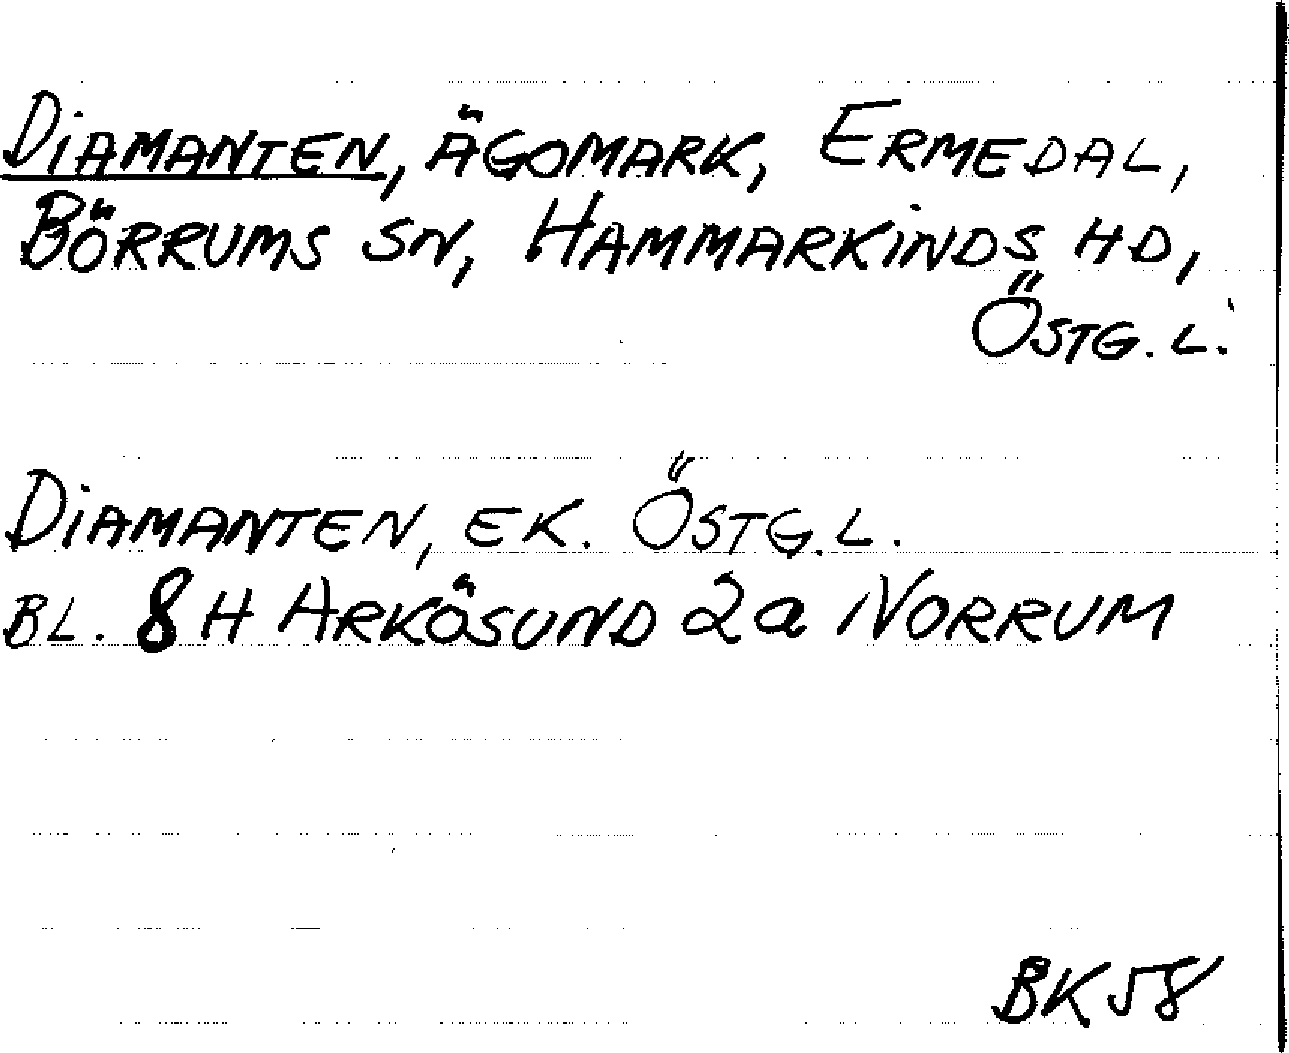 DIAMANTEN, ÄGOMARK, ERMEDAL,
BÖRRUMS SN, HAMMARKINDS HD,
ÖSTG. L.
DIAMANTEN, EK. ÖSTG. L.
BL. 8 H ARKÖSUND 2a NORRUM
BK 58